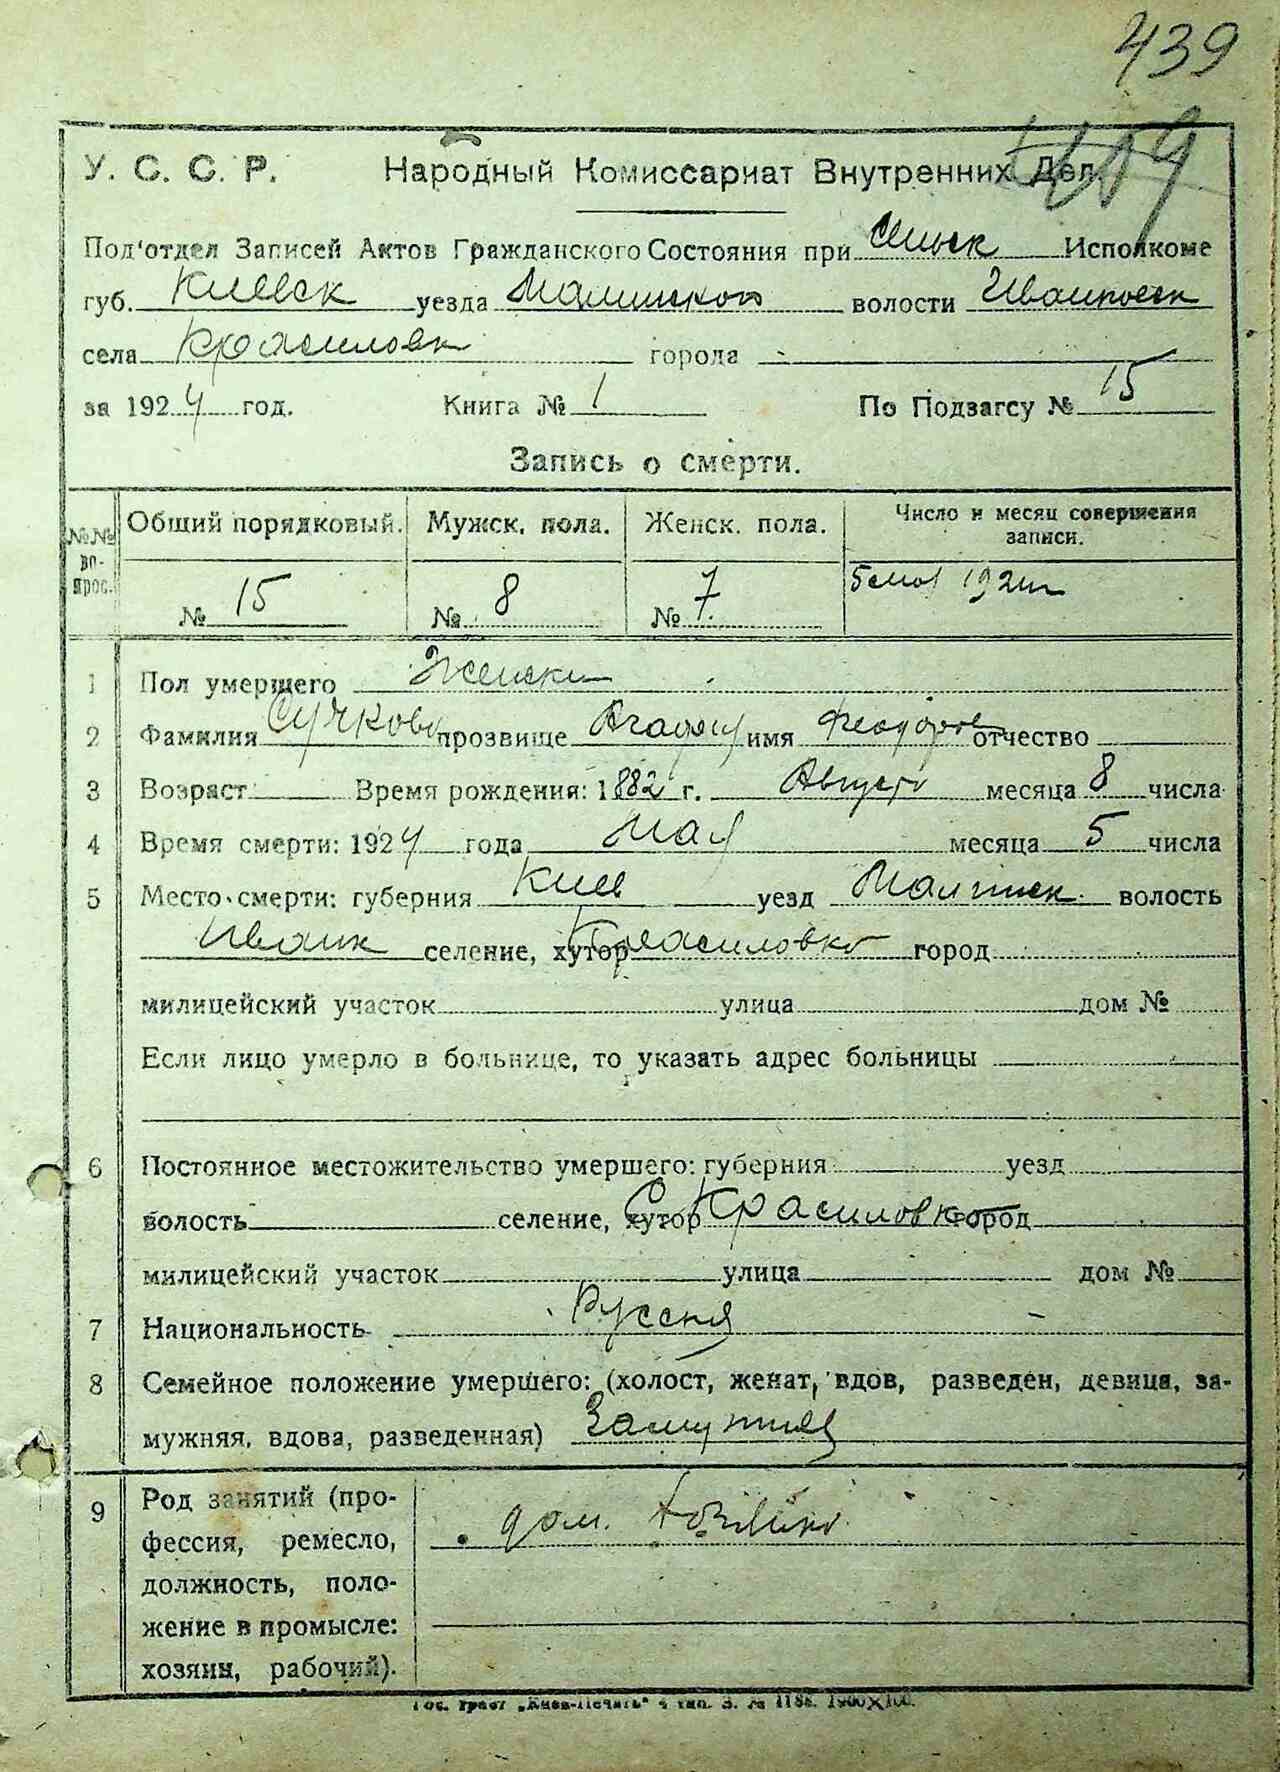 439
У. С. С. Р. Народный Комиссариат Внутренних Дел.
Под'отдел Записей Актов Гражданского Состояния при Сельск Исполкоме
губ. Киевск уезда Малинского волости Иванковск
села Красиловк города
за 1924 год. Книга № 1 По Подзагсу № 15
Запись о смерти.
№№ вопрос. Общий порядковый. Мужск. пола. Женск. пола. Число и месяц совершения записи.
№ 15 № 8 № 7 5 мая 1924 г
1 Пол умершего Женски
2 Фамилия Сучкова прозвище имя Феодоров отчество
3 Возраст Время рождения: 1882 г. Августа месяца 8 числа
4 Время смерти: 1924 года Мая месяца 5 числа
5 Место смерти: губерния Киев уезд Малинск волость
Иванк селение, хутор Красиловка город
милицейский участок улица дом №
Если лицо умерло в больнице, то указать адрес больницы
6 Постоянное местожительство умершего: губерния уезд
волость селение, хутор С Красиловка город
милицейский участок улица дом №
7 Национальность Русская
8 Семейное положение умершего: (холост, женат, вдов, разведен, девица, за-
мужняя, вдова, разведенная) Замужняя
9 Род занятий (про-
фессия, ремесло, дом.
должность, поло-
жение в промысле:
хозяин, рабочий).
Гос. трест „Киев-Печать“ 4 тип. З. № 1188. 1900×100.